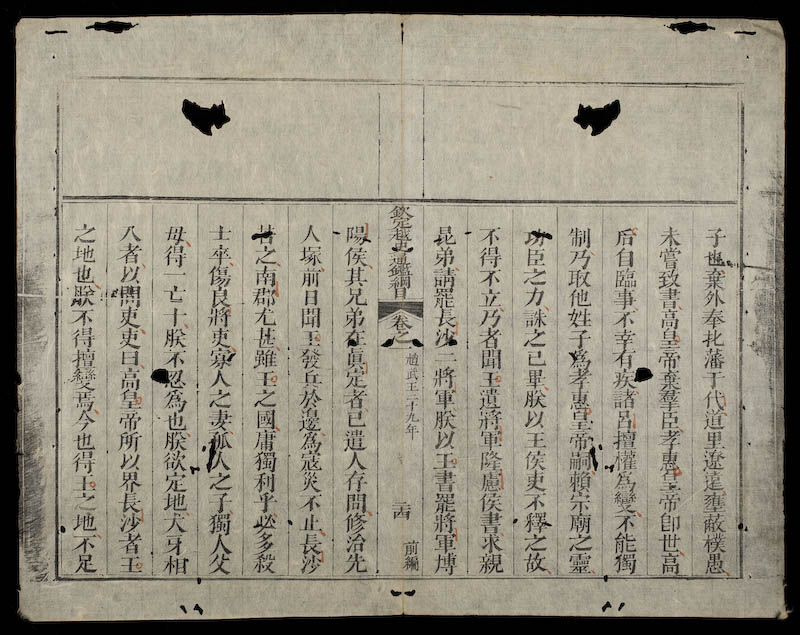 子也棄外奉北藩于代道里遼遠壅蔽樸愚
未嘗致書高皇帝棄羣臣孝惠皇帝即世高
后自臨事不幸有疾諸呂擅權為變不能獨
制乃取他姓子為孝惠皇帝嗣賴宗廟之靈
功臣之力誅之已畢朕以王侯吏不釋之故
不得不立乃者聞王遺將軍隆慮侯書求親
昆弟請罷長沙二將軍朕以王書罷將軍博
欽定越史通鑑綱目 卷之一 趙武王二十九年 二西 前編
陽侯其兄弟在真定者已遣人存問修治先
人塚前日聞王發兵於邊為寇災不止長沙
苦之南郡尤甚雖王之國庸獨利乎必多殺
士卒傷良將吏寡人之妻孤人之子獨人父
母得一亡十朕不忍為也朕欲定地犬牙相
入者以問吏吏曰高皇帝所以界長沙者王
之地也朕不得擅變焉今也得王之地不足